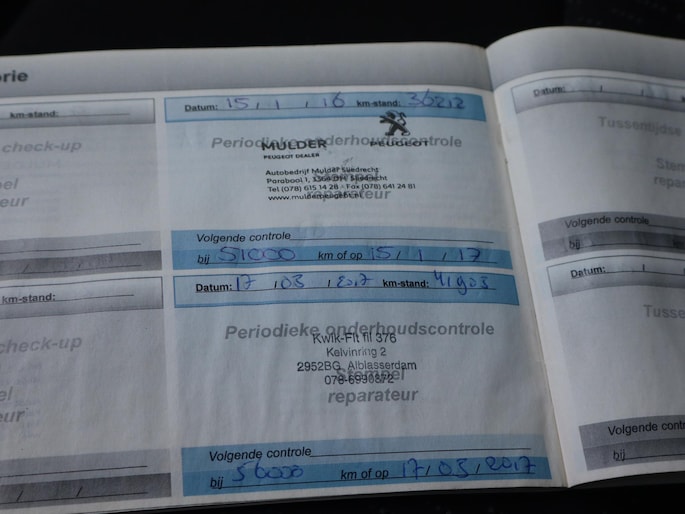 rie
km-stand:
check-up
Stempel
reparateur
km-stand:
check-up
Datum: 15 / 1 / 16 km-stand: 36212
Periodieke onderhoudscontrole
MULDER PEUGEOT
PEUGEOT DEALER
Autobedrijf Mulder Sliedrecht
Parabool 1, Sliedrecht
Tel (078) 615 14 28 - Fax (078) 641 24 81
www.mulderpeugeot.nl
reparateur
Volgende controle
bij 51000 km of op 15 / 1 / 17
Datum: 17 / 03 / 2017 km-stand: 41903
Periodieke onderhoudscontrole
Kwik-Fit fil 376
Kelvinring 2
2952BG Alblasserdam
078-6990872
Stempel
reparateur
Volgende controle
bij 56000 km of op 17 / 03 / 2017
Datum: / /
Tussentijdse
Stem
repara
Volgende controle
bij
Datum: / /
Tusse
S
rep
Volgende contr
bij